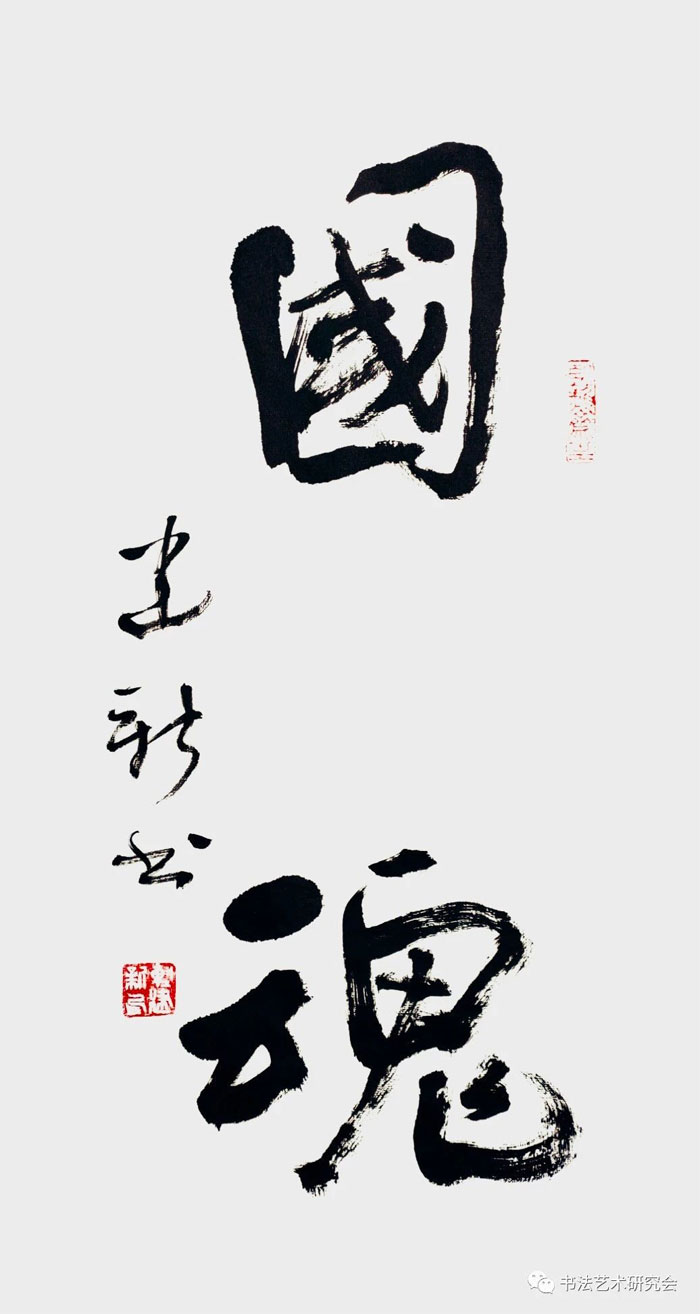 國魂
建新书
书法艺术研究会